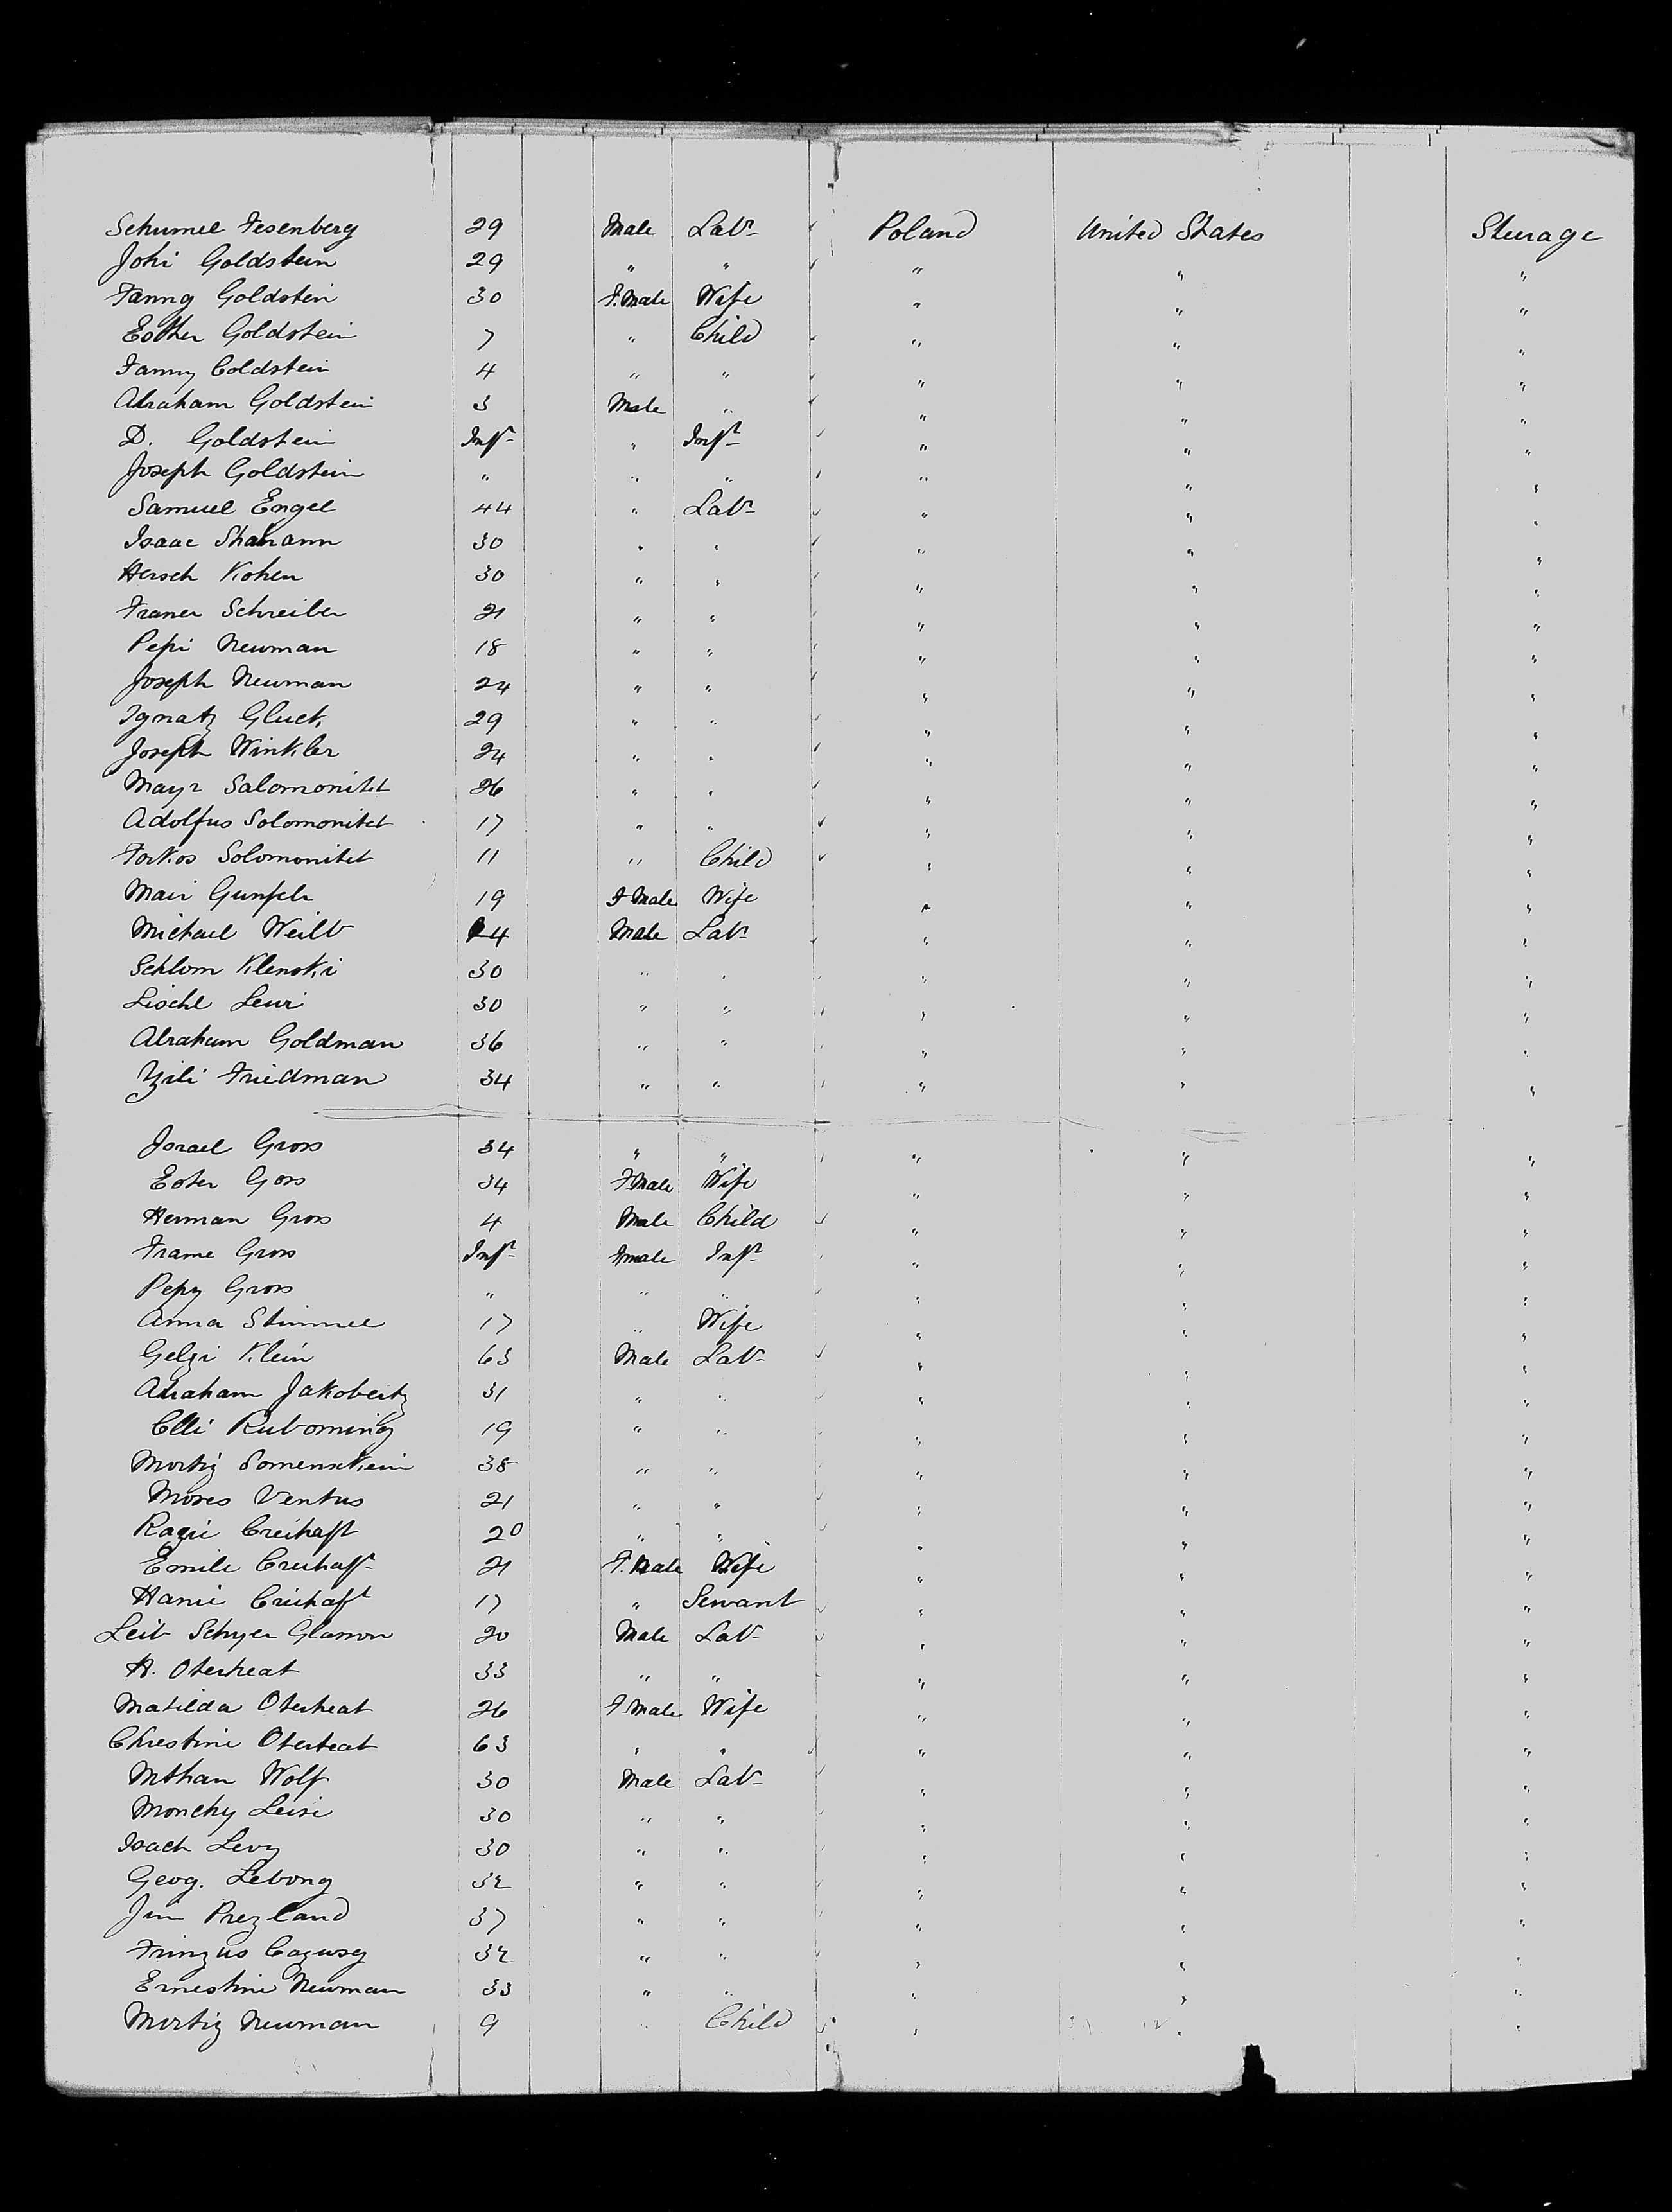 Schumel Fesenberg 29 Male Labr Poland United States Steerage
Johi Goldstein 29 " " " " "
Fanny Goldstein 30 F.Male Wife " " "
Esther Goldstein 7 " Child " " "
Fanny Goldstein 4 " " " " "
Abraham Goldstein 3 Male " " " "
D. Goldstein Inft " Inft " " "
Joseph Goldstein " " " " " "
Samuel Engel 44 " Labr " " "
Isaac 30 " " " " "
Hersch Kohen 30 " " " " "
Franer Schreiber 21 " " " " "
Pepi Newman 18 " " " " "
Joseph Newman 24 " " " " "
Ignatz Gluck 29 " " " " "
Joseph Winkler 24 " " " " "
Mayr Salomonitet 26 " " " " "
Adolfus Solomonitet 17 " " " " "
Solomonitet 11 " Child " " "
Mari 19 F Male Wife " " "
Michael Weilb Male Labr " " "
Schlom Klenski 30 " " " " "
Lischl Leuri 30 " " " " "
Abraham Goldman 36 " " " " "
Friedman 34 " " " " "
Israel Gross 34 " " " " "
Ester Goss 34 F.Male Wife " " "
Herman Gross 4 Male Child " " "
Frame Gross Inft Fmale Inft " " "
Pepy Gross " " " " " "
Anna Stimmel 17 " Wife " " "
Gelzi Klein 63 Male Labr " " "
Abraham Jakobertz 31 " " " " "
Elli 19 " " " " "
Mortiz 38 " " " " "
Moses Ventus 21 " " " " "
Creihaft 20 " " " " "
Emile Creihaft 21 F.Male Wife " " "
Hanie Creihaft 17 " Servant " " "
Leib Schyer 20 Male Labr " " "
H. Oterheat 33 " " " " "
Matilda Oterheat 26 F Male Wife " " "
Chrestine Oterheat 63 " " " " "
Wolf 30 Male Labr " " "
Monchy Leisi 30 " " " " "
Isach Levy 30 " " " " "
Geog. Lebong 32 " " " " "
Jim Prezland 37 " " " " "
32 " " " " "
Ernestine Newman 33 " " " " "
Mortiz Newman 9 " Child " " "